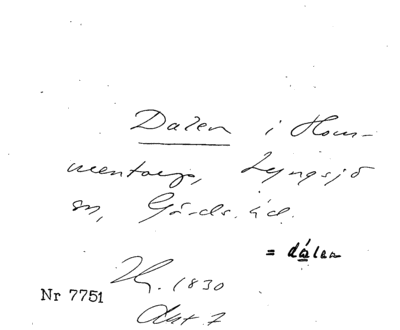 Dalen i Hom-
mentorp, Lyngsjö
sn, Gärds. hd.
= dálen
Nr 7751
1830
Akt 7